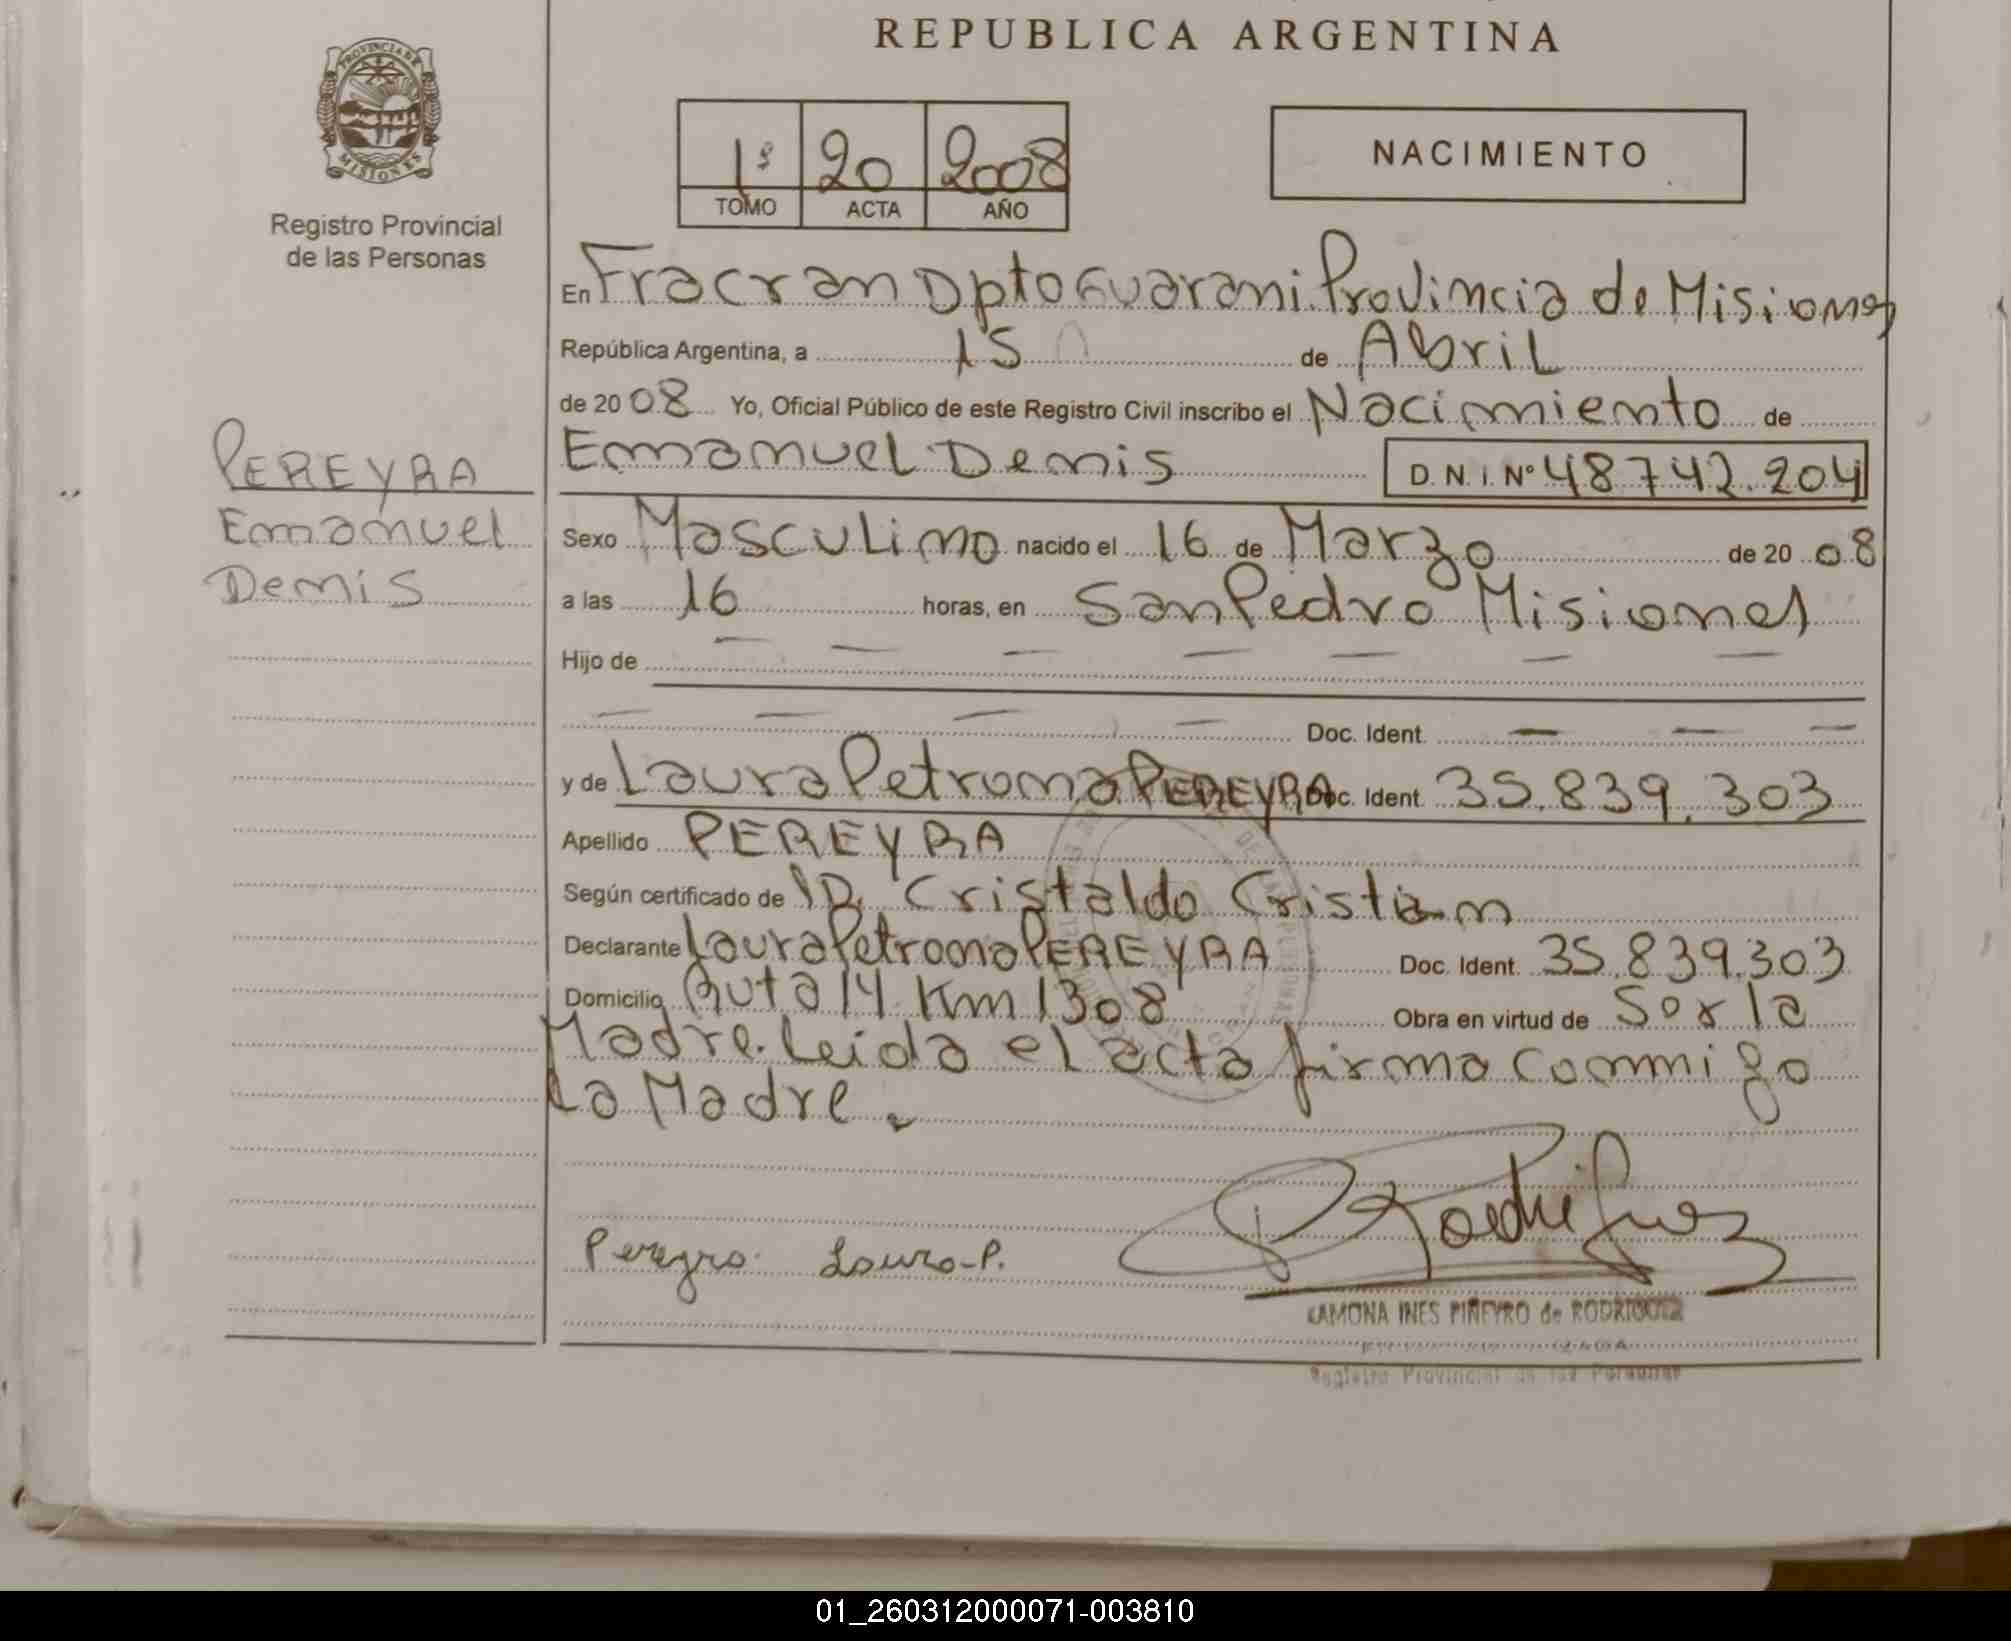 REPUBLICA ARGENTINA
PROVINCIA DE
MISIONES
Registro Provincial
de las Personas
1º 20 2008
TOMO ACTA AÑO
NACIMIENTO
En Fracran Dpto Guarani Provincia de Misiones
República Argentina, a 15 de Abril
de 2008 Yo, Oficial Público de este Registro Civil inscribo el Nacimiento de
Emanuel Denis D.N.I. Nº 48742.204
PEREYRA
Emanuel
Denis
Sexo Masculino nacido el 16 de Marzo de 2008
a las 16 horas, en San Pedro Misiones
Hijo de
Doc. Ident.
y de Laura Petrona PEREYRA Doc. Ident. 35.839.303
Apellido PEREYRA
Según certificado de Cristaldo Cristian
Declarante Laura Petrona PEREYRA Doc. Ident. 35.839.303
Domicilio Ruta 14 Km 1308 Obra en virtud de Ser la
Madre. Leida el acta firma conmigo
La Madre.
Pereyra Laura P.
Rodriguez
RAMONA INES PIÑEYRO de RODRIGUEZ
Registro Provincial de las Personas
01_260312000071-003810